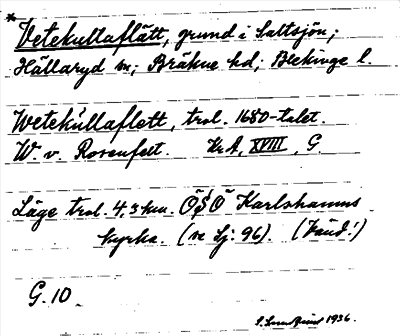 *Vetekullaflätt, grund i Saltsjön;
Hällaryd sn; Bräkne hd; Blekinge l.
Wetekullaflett, trol. 1680-talet.
W. v. Rosenfelt. Kr.A, XVIII, G.
Läge trol. 4,3 km. ÖSÖ Karlshamns
kyrka. (se Sj: 96). (Jänd!)
G. 10.
1936.